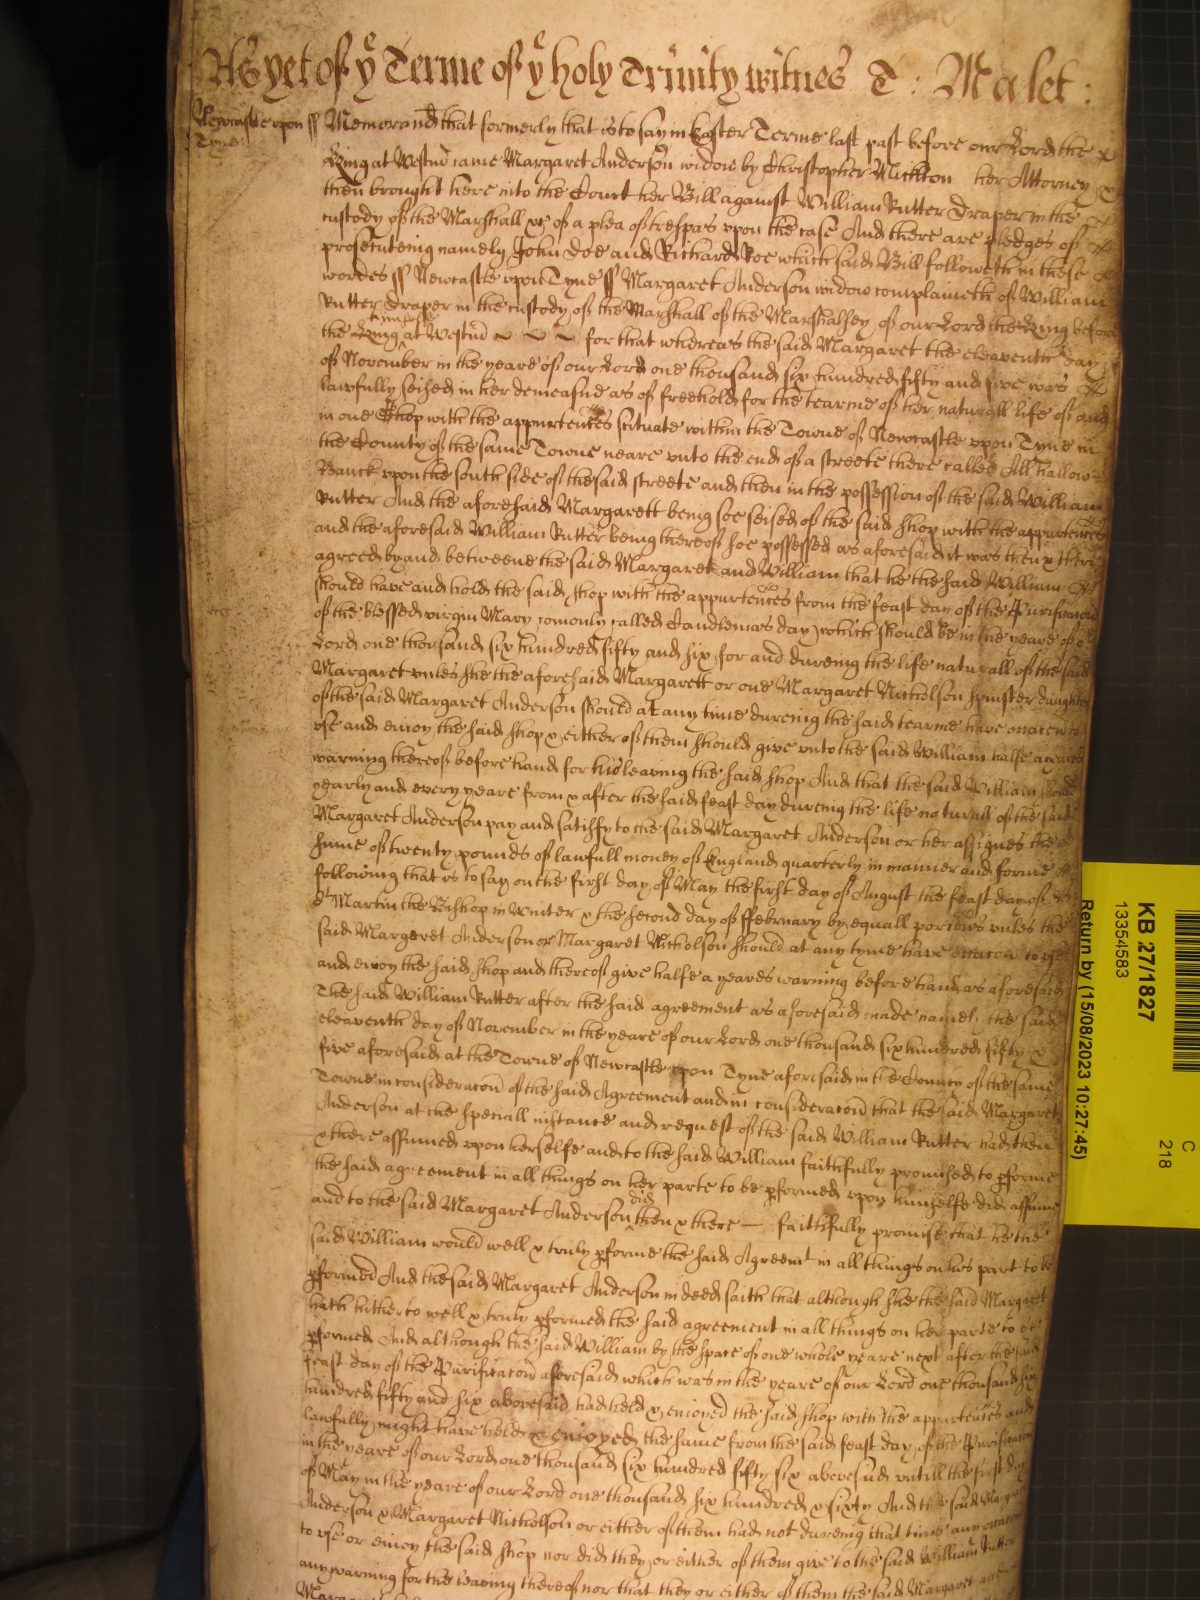 As yet of ye Terme of ye holy Trinity witnes T : Malet :
Newcastle upon
Tyne
ss Memorand that formerly that is to say in Easter Terme last past before our Lord the
King at Westm came Margaret Anderson widow by Christopher Mickleton her Attorney
then brought here into the Court her Bill against William Rutter Draper in the
custody of the Marshall &c of a plea of trespas upon the case And there are pledges of
prosecuteing namely John Doe and Richard Roe which said Bill followeth in these
wordes ss Newcastle upon Tyne ss Margaret Anderson widow complaineth of William
Rutter draper in the custody of the Marshall of the Marshalsey of our Lord the King before
the King at Westm for that whereas the said Margaret the eleaventh day
of November in the yeare of our Lord one thousand six hundred fifty and five was
lawfully seised in her demeasne as of freehold for the tearme of her naturall life of and
in one Shop with the appurtences scituate within the Towne of Newcastle upon Tyne in
the County of the same Towne neare unto the end of a streete there called All hallow
Banck upon the south side of the said streete and then in the possession of the said William
Rutter And the aforesaid Margarett being soe seised of the said shop with the appurtences
and the aforesaid William Rutter being thereof soe possessed as aforesaid it was then & there
agreed by and betweene the said Margaret and William that he the said William
should have and hold the said shop with the appurtences from the feast day of the Purificacon
of the blessed virgin Mary comonly called Candlemas day which should be in the yeare of
Lord one thousand six hundred fifty and six for and dureing the life naturall of the said
Margaret unles she the aforesaid Margarett or one Margaret Nicholson spinster daughter
of the said Margaret Anderson should at any time dureing the said tearme have occacon to
use and enioy the said shop & either of them should give unto the said William halfe a yeares
warning thereof before hand for his leaving the said shop And that the said William should
yearly and every yeare from & after the said feast day dureing the life naturall of the said
Margaret Anderson pay and satisfy to the said Margaret Anderson or her assignes the
sume of twenty pounds of lawfull money of England quarterly in manner and forme
following that is to say on the first day of May the first day of August the feast day of
St Martin the Bishop in Winter & the second day of ffebruary by equall porcons unles the
said Margeret Anderson or Margaret Nicholson should at any tyme have occacon to use
and enioy the said shop and thereof give halfe a yeares warning before hand as aforesaid
The said William Rutter after the said agreement as aforesaid made namely the said
eleaventh day of November in the yeare of our Lord one thousand six hundred fifty &
five aforesaid at the Towne of Newcastle upon Tyne aforesaid in the County of the same
Towne in consideracon of the said Agreement and in consideracon that the said Margaret
Anderson at the speciall instance and request of the said William Rutter had then
& there assumed upon herselfe and to the said William faithfully promised to pforme
the said agreement in all things on her parte to be pformed upon himselfe did assume
and to the said Margaret Anderson did then & there faithfully promise that he the
said William would well & truly pforme the said Agreemt in all things on his part to be
pformed And the said Margaret Anderson in deed saith that although she the said Margaret
hath hitherto well & truly pformed the said agreement in all things on her parte to be
pformed And although the said William by the space of one whole yeare next after the said
feast day of the Purificacon aforesaid which was in the yeare of our Lord one thousand six
hundred fifty and six abovesaid had held & enioyed the said shop with the appurtences and
lawfully might have held & enioyed the same from the said feast day of the Purificacon
in the yeare of our Lord one thousand six hundred fifty six abovesaid untill the first day
of May in the yeare of our Lord one thousand six hundred & sixty And the said Margaret
Anderson & Margaret Nicholson or either of them had not dureing that time any occacon
to use or enioy the said shop nor did they or either of them give to the said William Rutter
any warning for the leaving thereof nor that they or either of them the said Margaret and
KB 27/1827
13354583
Return by (15/08/2023 10:27:45)
C
218